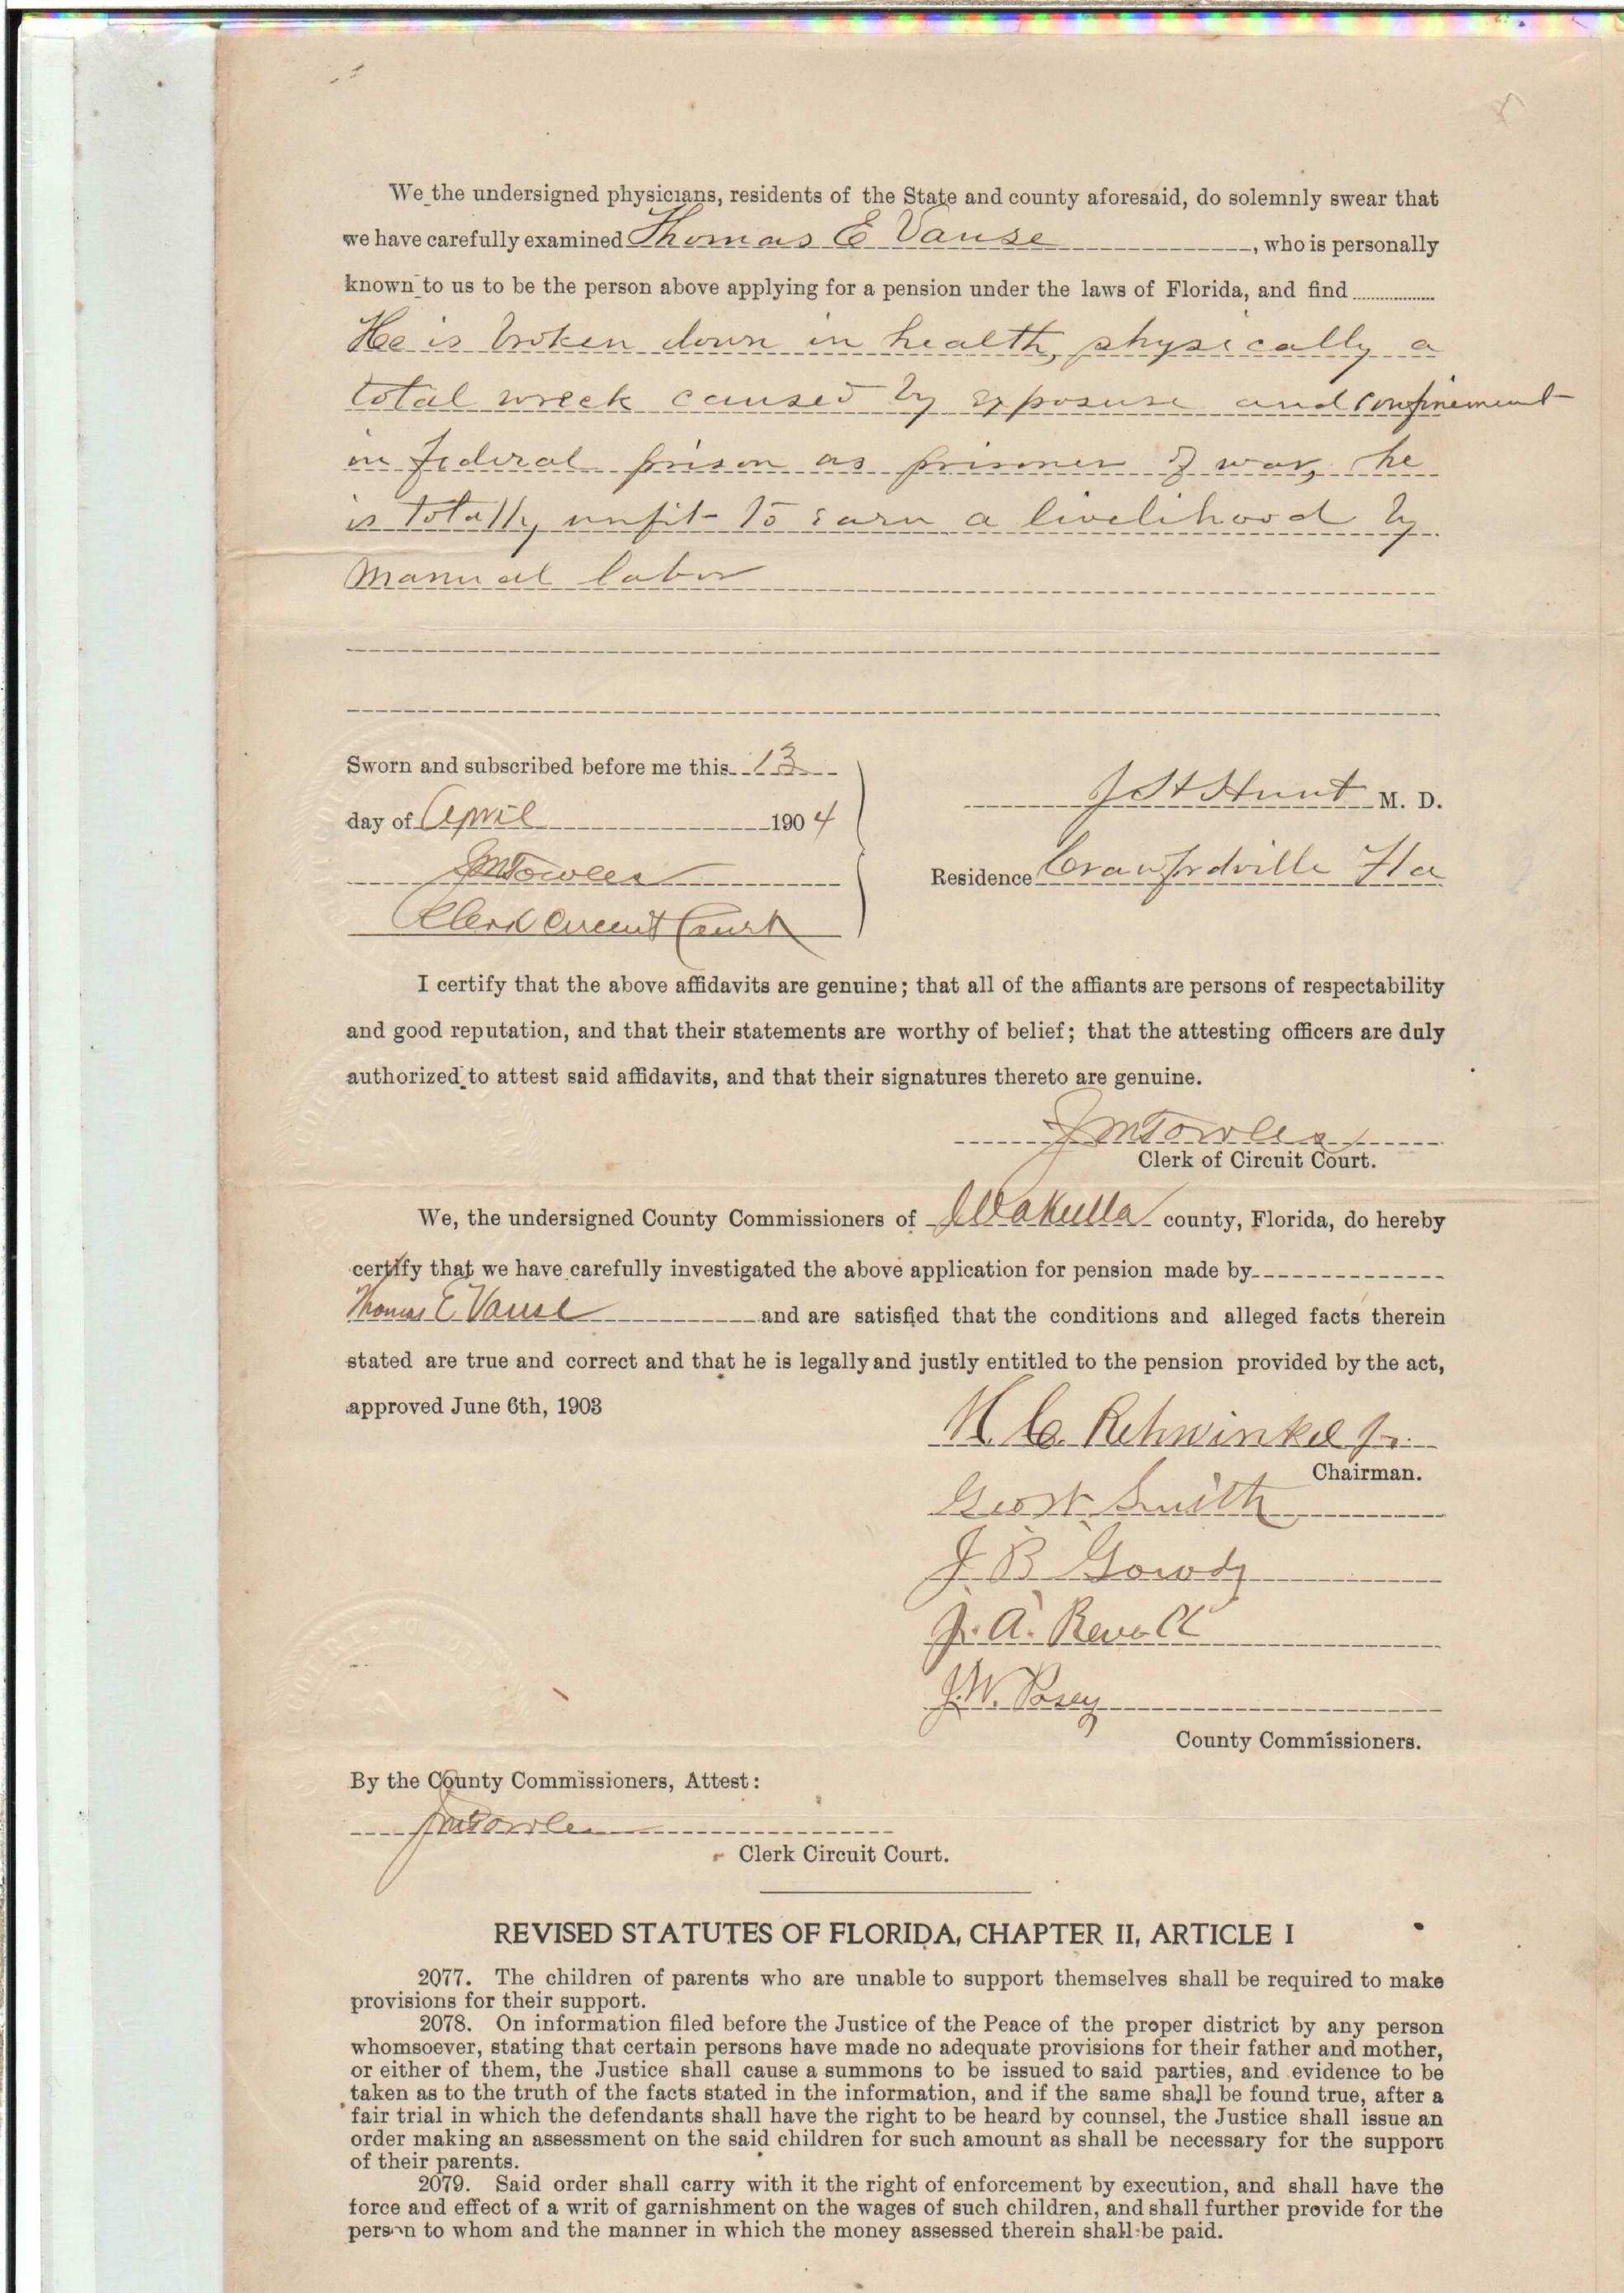 We the undersigned physicians, residents of the State and county aforesaid, do solemnly swear that
we have carefully examined Thomas E Vause, who is personally
known to us to be the person above applying for a pension under the laws of Florida, and find
He is broken down in health, physically a
total wreck caused by exposure and confinement
in federal prison as prisoner of war, he
is totally unfit to earn a livelihood by
manual labor
Sworn and subscribed before me this 13
day of April 1904
J M Towles
Clerk Circuit Court
J H Hunt M. D.
Residence Crawfordville Fla
I certify that the above affidavits are genuine; that all of the affiants are persons of respectability
and good reputation, and that their statements are worthy of belief; that the attesting officers are duly
authorized to attest said affidavits, and that their signatures thereto are genuine.
J M Towles
Clerk of Circuit Court.
We, the undersigned County Commissioners of Wakulla county, Florida, do hereby
certify that we have carefully investigated the above application for pension made by
Thomas E Vause and are satisfied that the conditions and alleged facts therein
stated are true and correct and that he is legally and justly entitled to the pension provided by the act,
approved June 6th, 1903
H. C. Rehwinkel Jr.
Chairman.
Geo W Smith
J B Gowdy
J. A. Revell
J. W. Posey
County Commissioners.
By the County Commissioners, Attest:
J M Towles
Clerk Circuit Court.
REVISED STATUTES OF FLORIDA, CHAPTER II, ARTICLE I
2077. The children of parents who are unable to support themselves shall be required to make
provisions for their support.
2078. On information filed before the Justice of the Peace of the proper district by any person
whomsoever, stating that certain persons have made no adequate provisions for their father and mother,
or either of them, the Justice shall cause a summons to be issued to said parties, and evidence to be
taken as to the truth of the facts stated in the information, and if the same shall be found true, after a
fair trial in which the defendants shall have the right to be heard by counsel, the Justice shall issue an
order making an assessment on the said children for such amount as shall be necessary for the support
of their parents.
2079. Said order shall carry with it the right of enforcement by execution, and shall have the
force and effect of a writ of garnishment on the wages of such children, and shall further provide for the
person to whom and the manner in which the money assessed therein shall be paid.